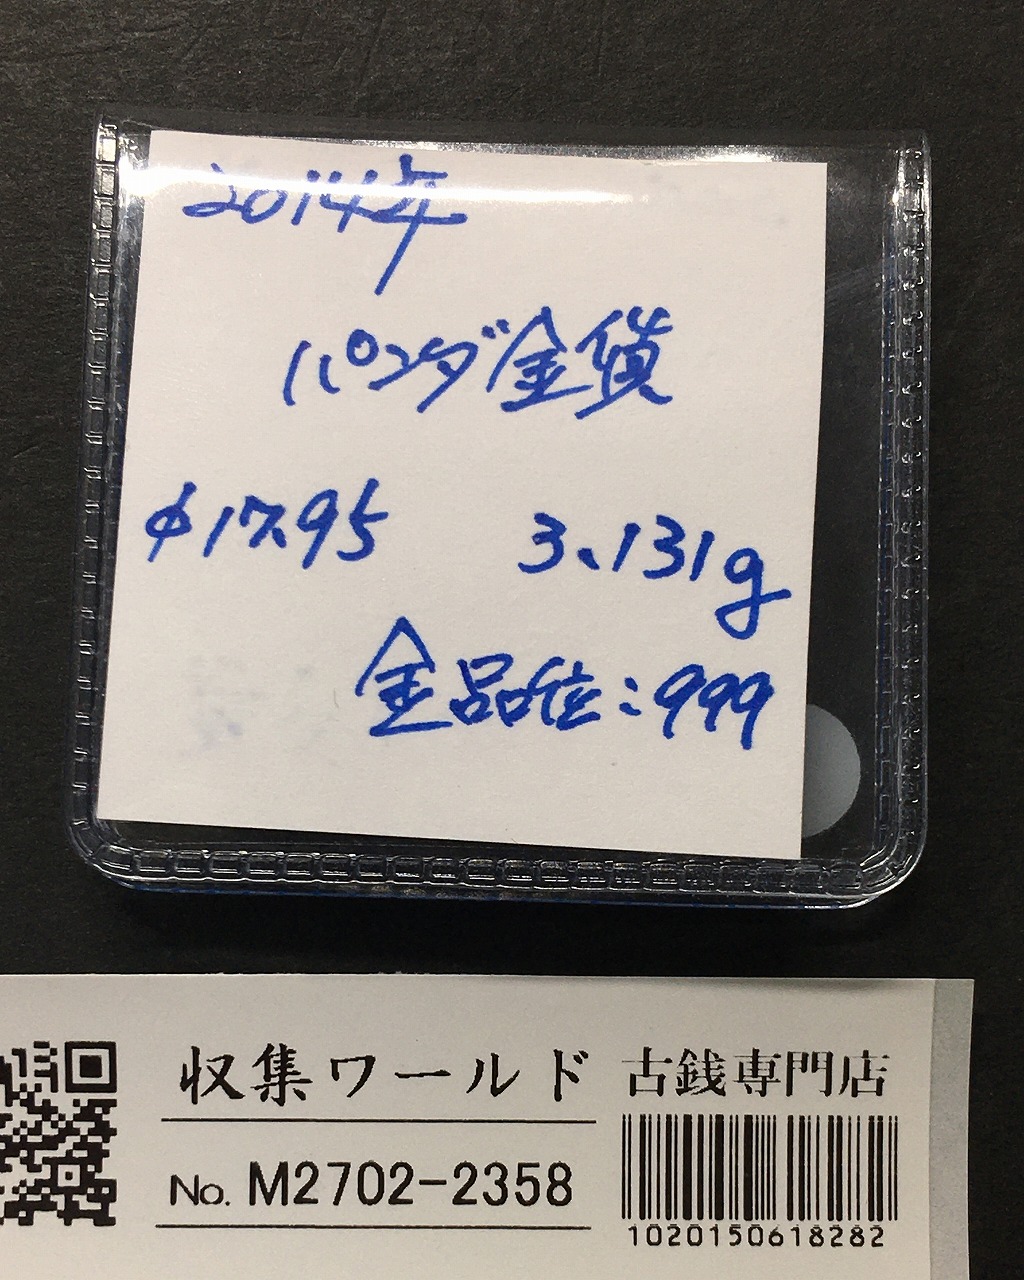 2014年
パンダ金貨
φ17.95 3.131g
金品位:999
収集ワールド 古銭専門店
No. M2702-2358
1020150618282